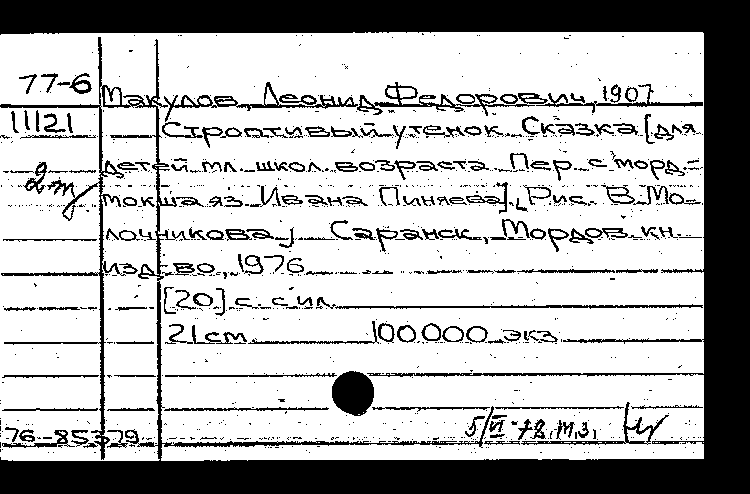 77-6
11121
2т
Макулов, Леонид Федорович, 1907
Строптивый утенок. Сказка [для
детей мл. школ. возраста. Пер. с морд.-
мокша яз. Ивана Пиняева]. [Рис. В. Мо-
лочникова]. Саранск, Мордов. кн.
изд-во, 1976.
[20] с. с ил.
21 см. 100000 экз.
76-85379